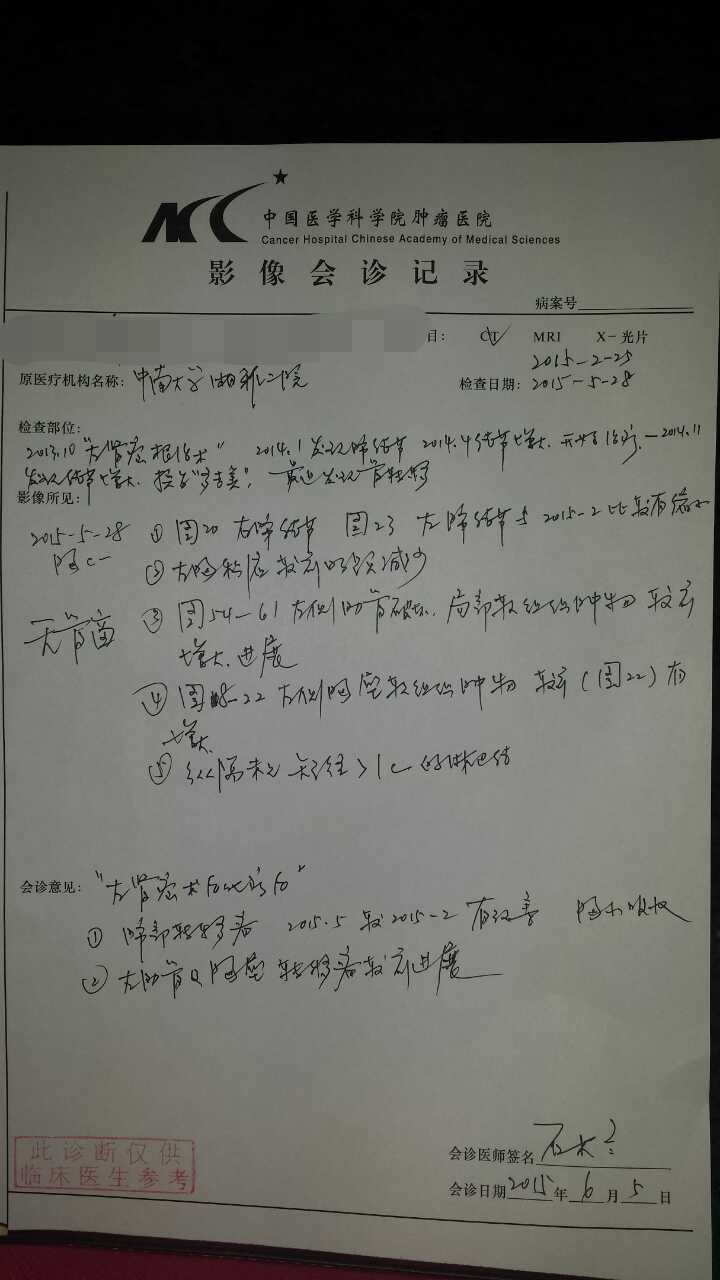 中国医学科学院肿瘤医院
Cancer Hospital Chinese Academy of Medical Sciences
影像会诊记录
病案号
目: CT MRI X-光片
原医疗机构名称: 中南大学湘雅二院
2015-2-25
检查日期: 2015-5-28
检查部位:
2013.10 "左肾癌根治术" 2014.1发现肺结节 2014.4结节增大.开始治疗.—2014.11
发现结节增大. 最近发现骨转移
影像所见:
2015-5-28 ① 图20 右肺结节 图23 左肺结节与2015-2比较有缩小
胸C-
② 左胸积液较前明显减少
无骨窗 ③ 图54-61 左侧肋骨破坏.局部软组织肿物较前
增大.进展
④ 图22 左侧胸壁软组织肿物较前(图22)有
增大.
⑤ 纵隔未见短径>1c的淋巴结
会诊意见: "左肾癌术后化疗后"
① 肺部转移者 2015.5较2015-2有改善 胸水吸收
② 左肋骨及胸壁转移者较前进展
此诊断仅供
临床医生参考
会诊医师签名
会诊日期 2015年6月5日